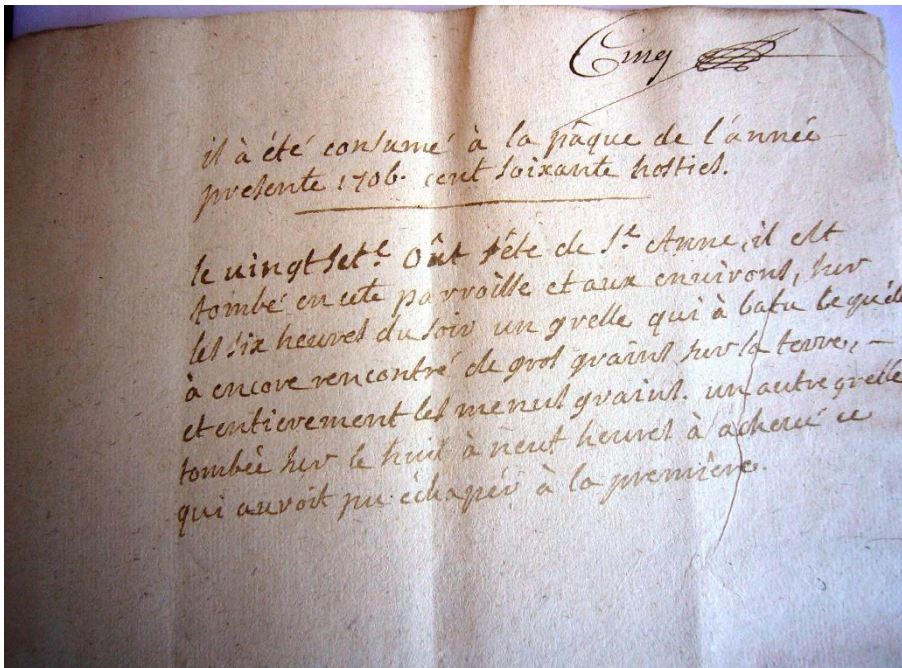 Cinq
il à été consumé à la pâque de l'année
presente 1706. cent soixante hosties.
le vingt set.e Oût fête de S.te Anne, il est
tombé en cete parroisse et aux environs, sur
les six heures du soir un grelle qui à batu ce qu'elle
à encore rencontré de gros grains sur la terre,
et entierement les menus grains. un autre grelle
tombée sur le huit à neuf heures à achevé ce
qui auroit pu échapér à la première.